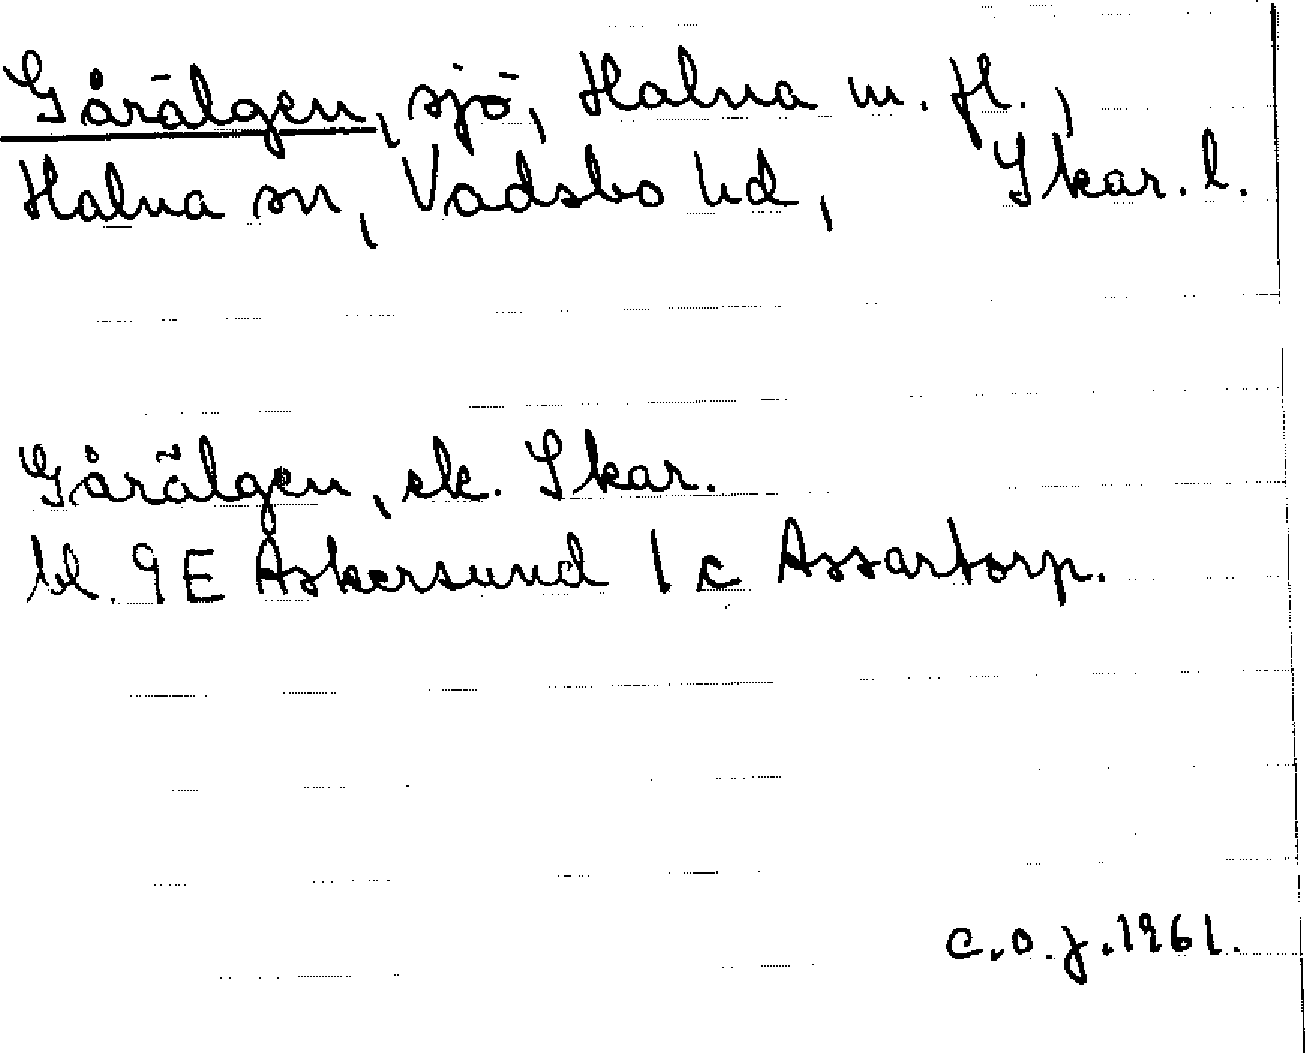 Gårälgen, sjö, Halna m. fl.,
Halna sn, Vadsbo hd, Skar. l.
Gårälgen, ek. Skar.
bl. 9E Askersund 1c Assartorp.
C.O.J. 1961.